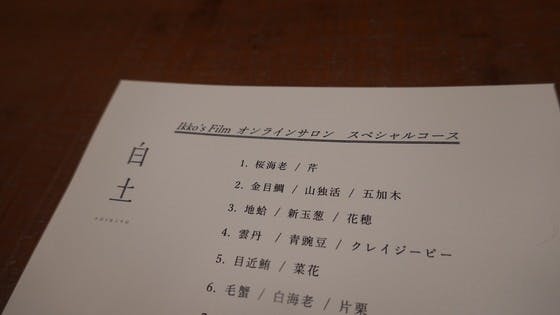 Ikko's Film オンラインサロン スペシャルコース
白土
1. 桜海老 / 芹
2. 金目鯛 / 山独活 / 五加木
3. 地蛤 / 新玉葱 / 花穂
4. 雲丹 / 青豌豆 / クレイジーピー
5. 目近鮪 / 菜花
6. 毛蟹 / 白海老 / 片栗